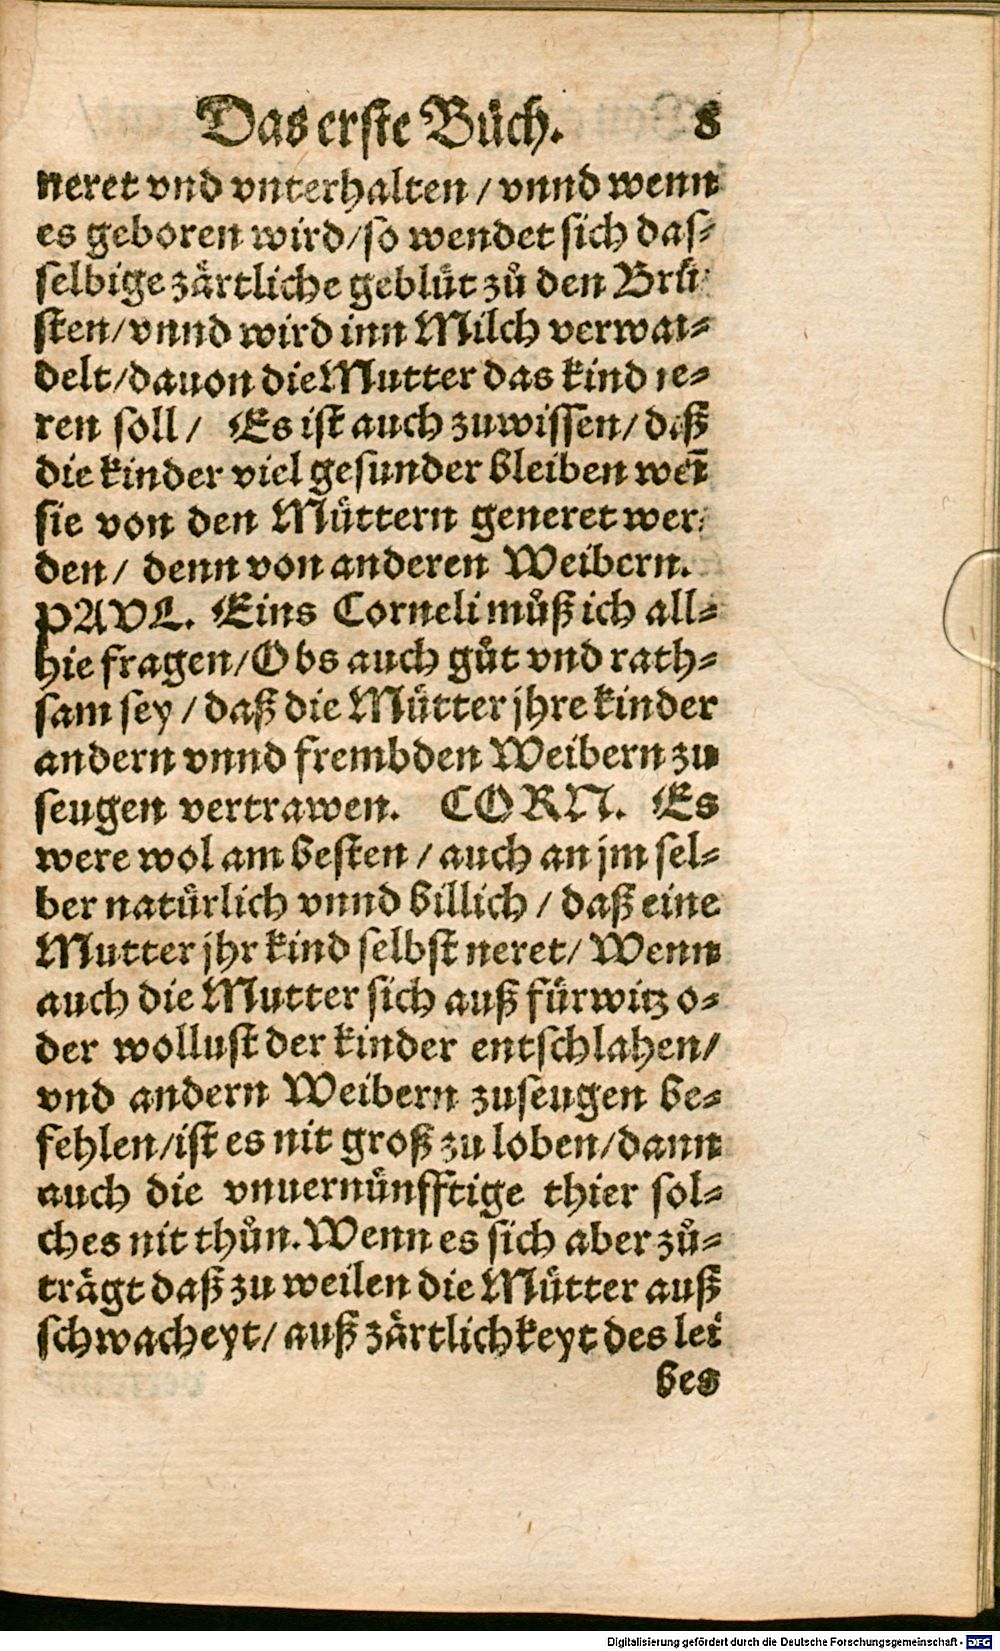 Das erste Bůch. 8
neret vnd vnterhalten / vnnd wenn
es geboren wird / so wendet sich das⸗
selbige zärtliche geblüt zů den Brü⸗
sten / vnnd wird inn Milch verwan⸗
delt / dauon die Mutter das kind ne⸗
ren soll / Es ist auch zuwissen / daß
die kinder viel gesunder bleiben weñ
sie von den Müttern generet wer⸗
den / denn von anderen Weibern.
PAVL. Eins Corneli můß ich all⸗
hie fragen / Obs auch gůt vnd rath⸗
sam sey / daß die Mütter jhre kinder
andern vnnd frembden Weibern zu
seugen vertrawen. CORN. Es
were wol am besten / auch an jm sel⸗
ber natürlich vnnd billich / daß eine
Mutter jhr kind selbst neret / Wenn
auch die Mutter sich auß fürwitz o⸗
der wollust der kinder entschlahen /
vnd andern Weibern zuseugen be⸗
fehlen / ist es nit groß zu loben / dann
auch die vnuernünfftige thier sol⸗
ches nit thůn. Wenn es sich aber zů⸗
trägt daß zu weilen die Mütter auß
schwacheyt / auß zärtlichkeyt des lei
bes
Digitalisierung gefördert durch die Deutsche Forschungsgemeinschaft - DFG